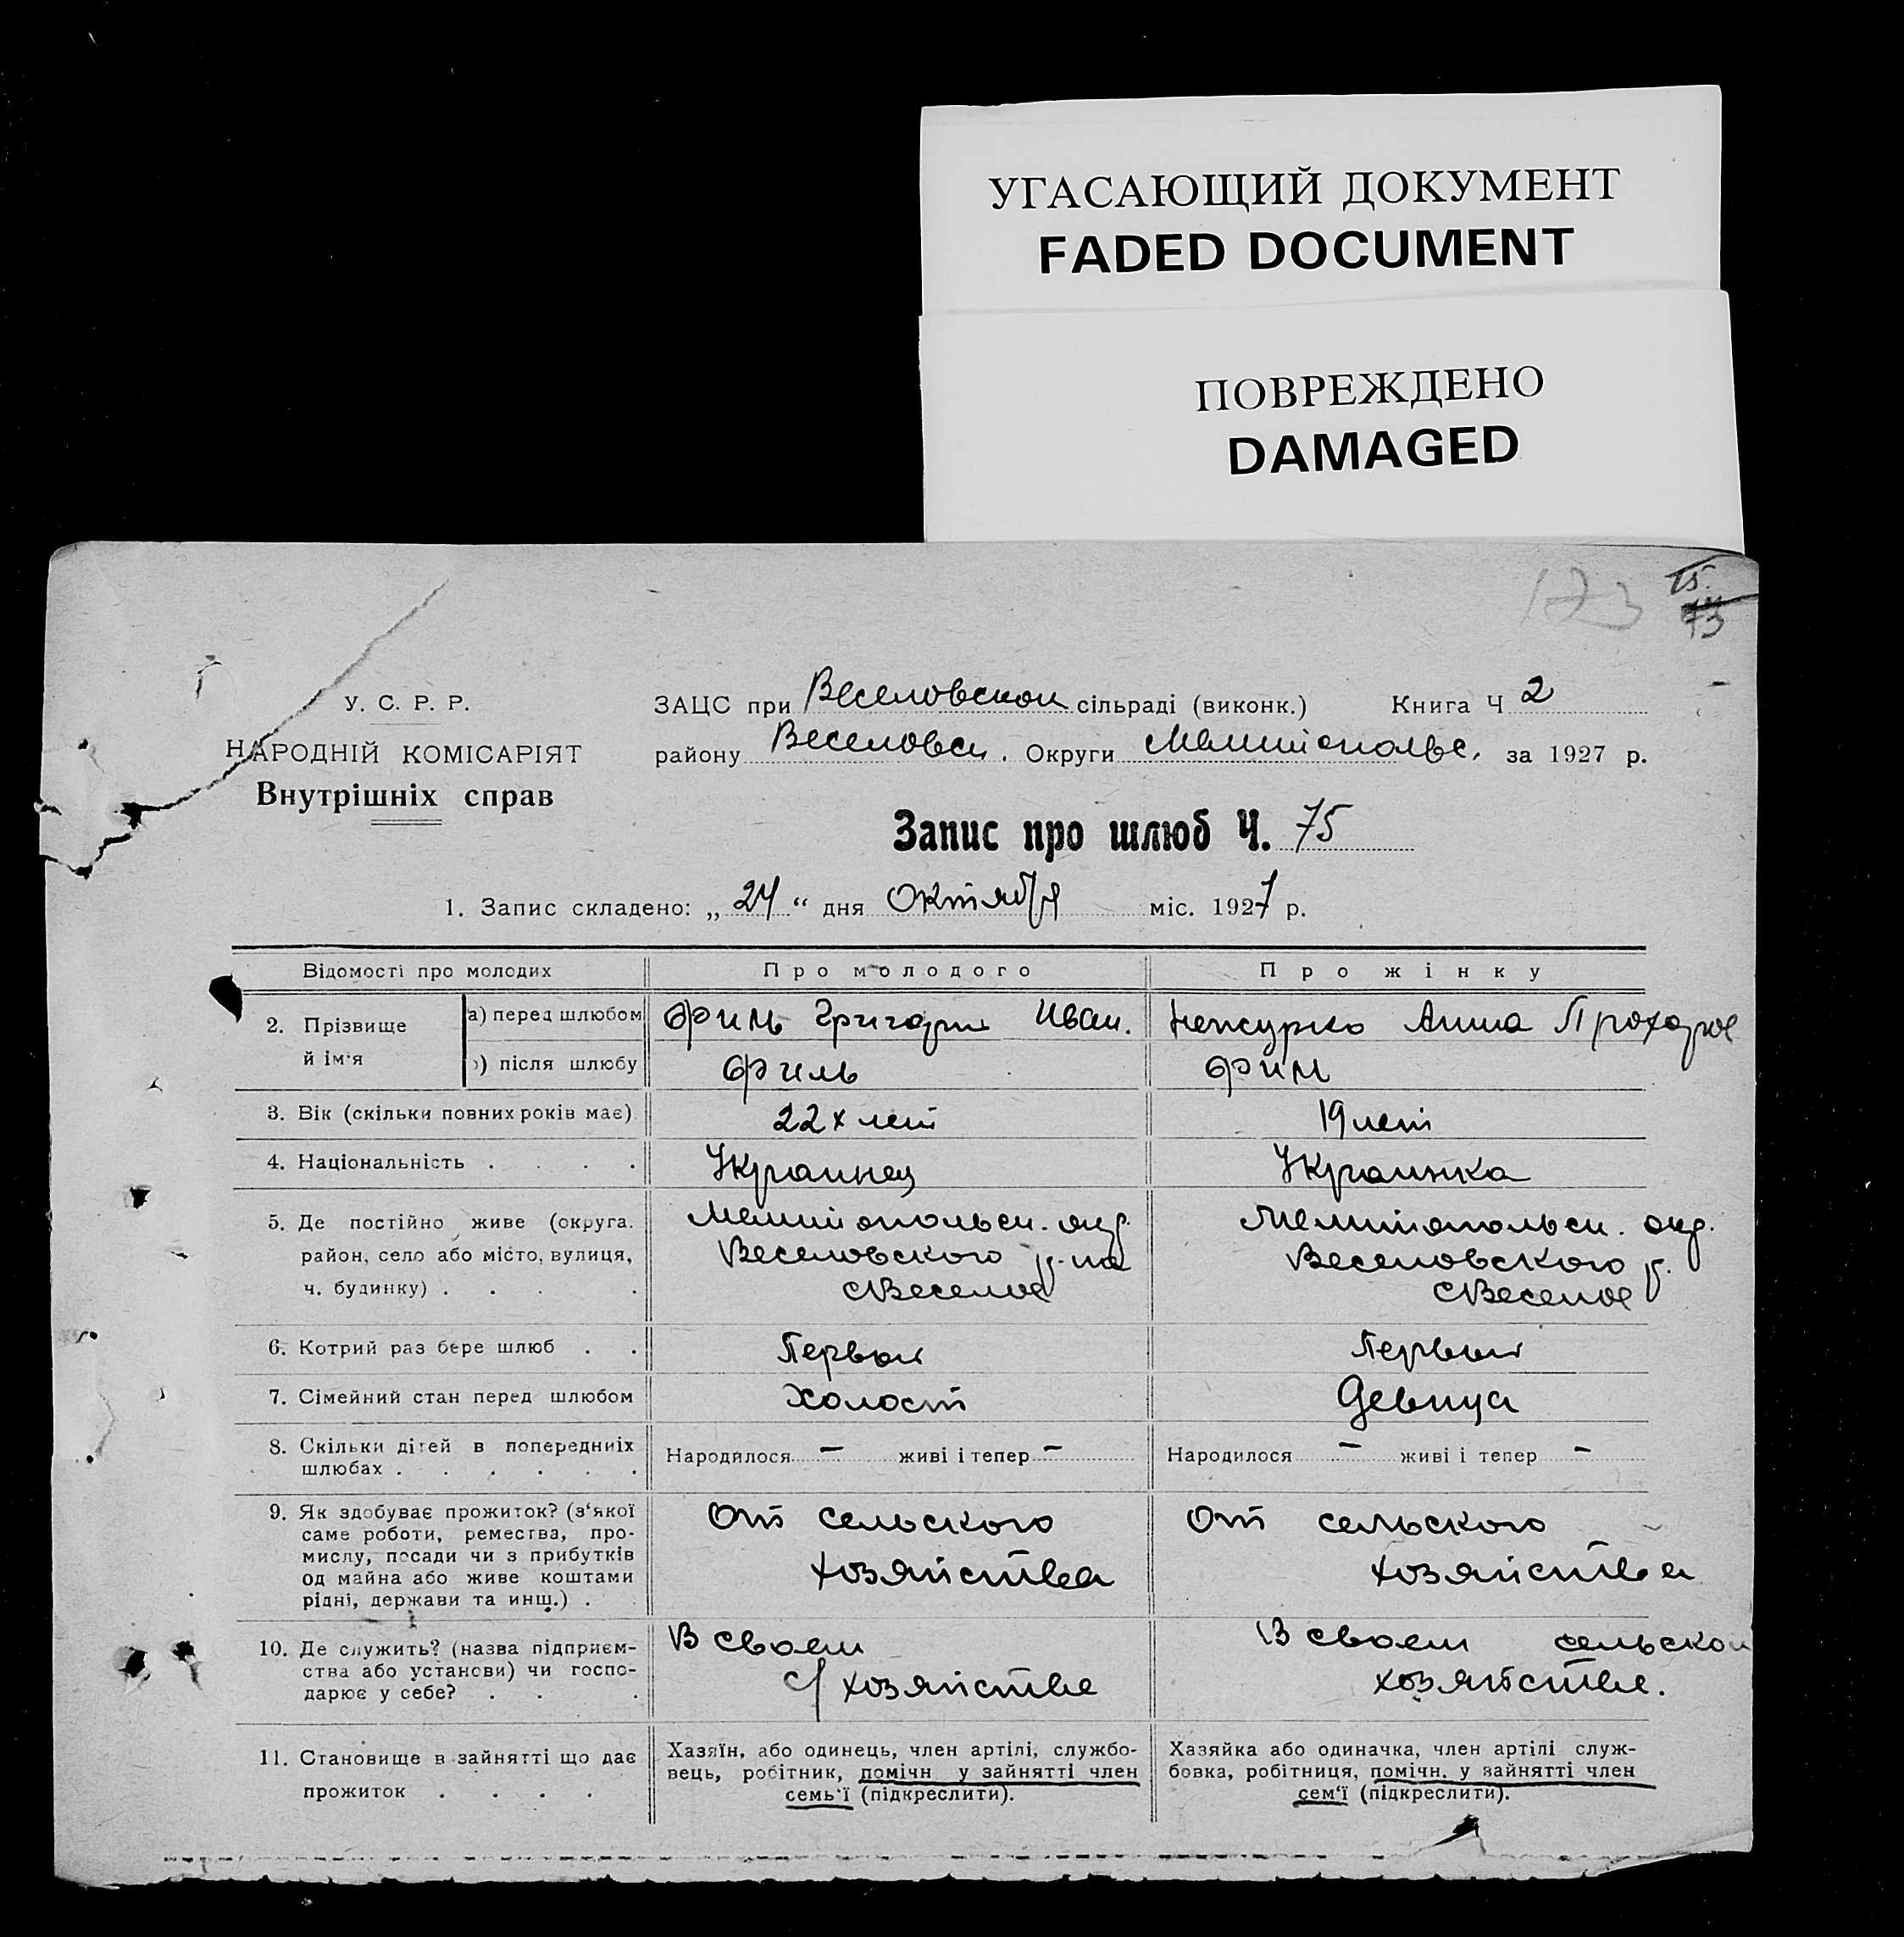 УГАСАЮЩИЙ ДОКУМЕНТ
FADED DOCUMENT
ПОВРЕЖДЕНО
DAMAGED
173
75
73
У. С. Р. Р.
НАРОДНІЙ КОМІСАРІЯТ
Внутрішніх справ
ЗАЦС при Веселовской сільраді (виконк.) Книга Ч 2
району Веселовск. Округи Мелитопольс. за 1927 р.
Запис про шлюб Ч. 75
1. Запис складено: „24“ дня Октября міс. 1927 р.
Відомості про молодих
Про молодого
Про жінку
2. Прізвище й ім'я
а) перед шлюбом
Филь Григорий Иван.
Анна Прохоров
б) після шлюбу
Филь
Филь
3. Вік (скільки повних років має)
22х лет
19 лет
4. Національність . . . .
Украинец
Украинка
5. Де постійно живе (округа.
район, село або місто, вулиця,
ч. будинку) . . . .
Мелитопольск. окр.
Веселовского р-на
с Веселое
Мелитопольск. окр.
Веселовского р.
с Веселое
6. Котрий раз бере шлюб . .
Первый
Первый
7. Сімейний стан перед шлюбом
Холост
Девица
8. Скільки дітей в попередниіх
шлюбах . . . . . .
Народилося — живі і тепер —
Народилося — живі і тепер —
9. Як здобуває прожиток? (з'якої
саме роботи, ремества, про-
мислу, посади чи з прибутків
од майна або живе коштами
рідні, держави та инш.) .
От сельского
хозяйства
От сельского
хозяйства
10. Де служить? (назва підприєм-
ства або установи) чи госпо-
дарює у себе? . . .
В своем
с/хозяйстве
В своем сельском
хозяйстве.
11. Становище в зайнятті що дає
прожиток . . . .
Хазяїн, або одинець, член артілі, службо-
вець, робітник, помічн у зайнятті член
семь'ї (підкреслити).
Хазяйка або одиначка, член артілі служ-
бовка, робітниця, помічн. у зайнятті член
сем'ї (підкреслити).